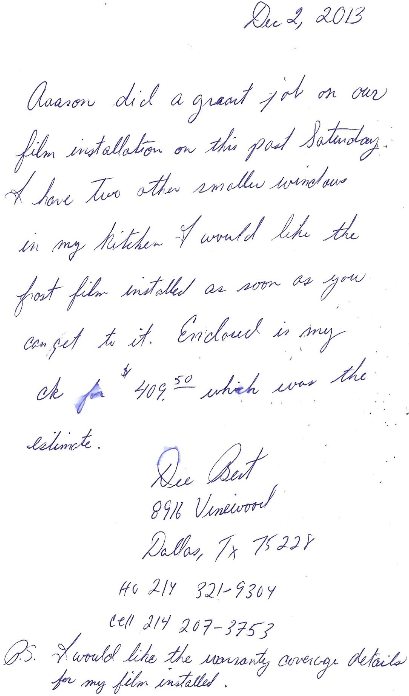 Dec 2, 2013
Aaason did a graat job on our
film installation on this past Saturday.
I have two other smaller windows
in my kitchen I would like the
frost film installed as soon as you
can get to it. Enclosed is my
ck for $409.50 which was the
estimate.
Dee Bert
8916 Vinewood
Dallas, Tx 75228
Ho 214 321-9304
Cell 214 207-3753
P.S. I would like the warranty coverage details
for my film installed.